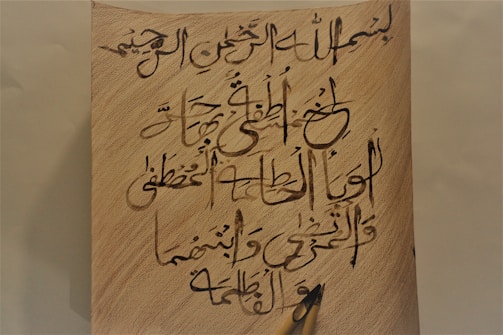 بِسْمِ اللهِ الرَّحْمٰنِ الرَّحِيْمِ
لِي خَمْسَةٌ أُطْفِي بِهَا
الْوَبَا الْحَاطِمَه الْمُصْطَفٰی
وَالْمُرْتَضٰی وَابْنَيْهُمَا
وَالْفَاطِمَه